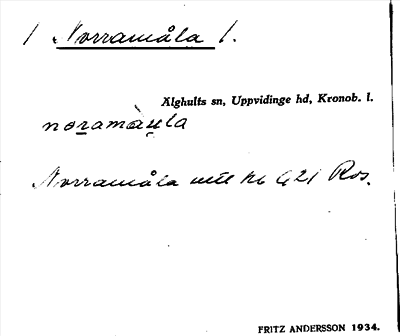 / Norramåla /.
Älghults sn, Uppvidinge hd, Kronob. l.
noramàula
Norramåla mtl kb 621 Ros.
FRITZ ANDERSSON 1934.